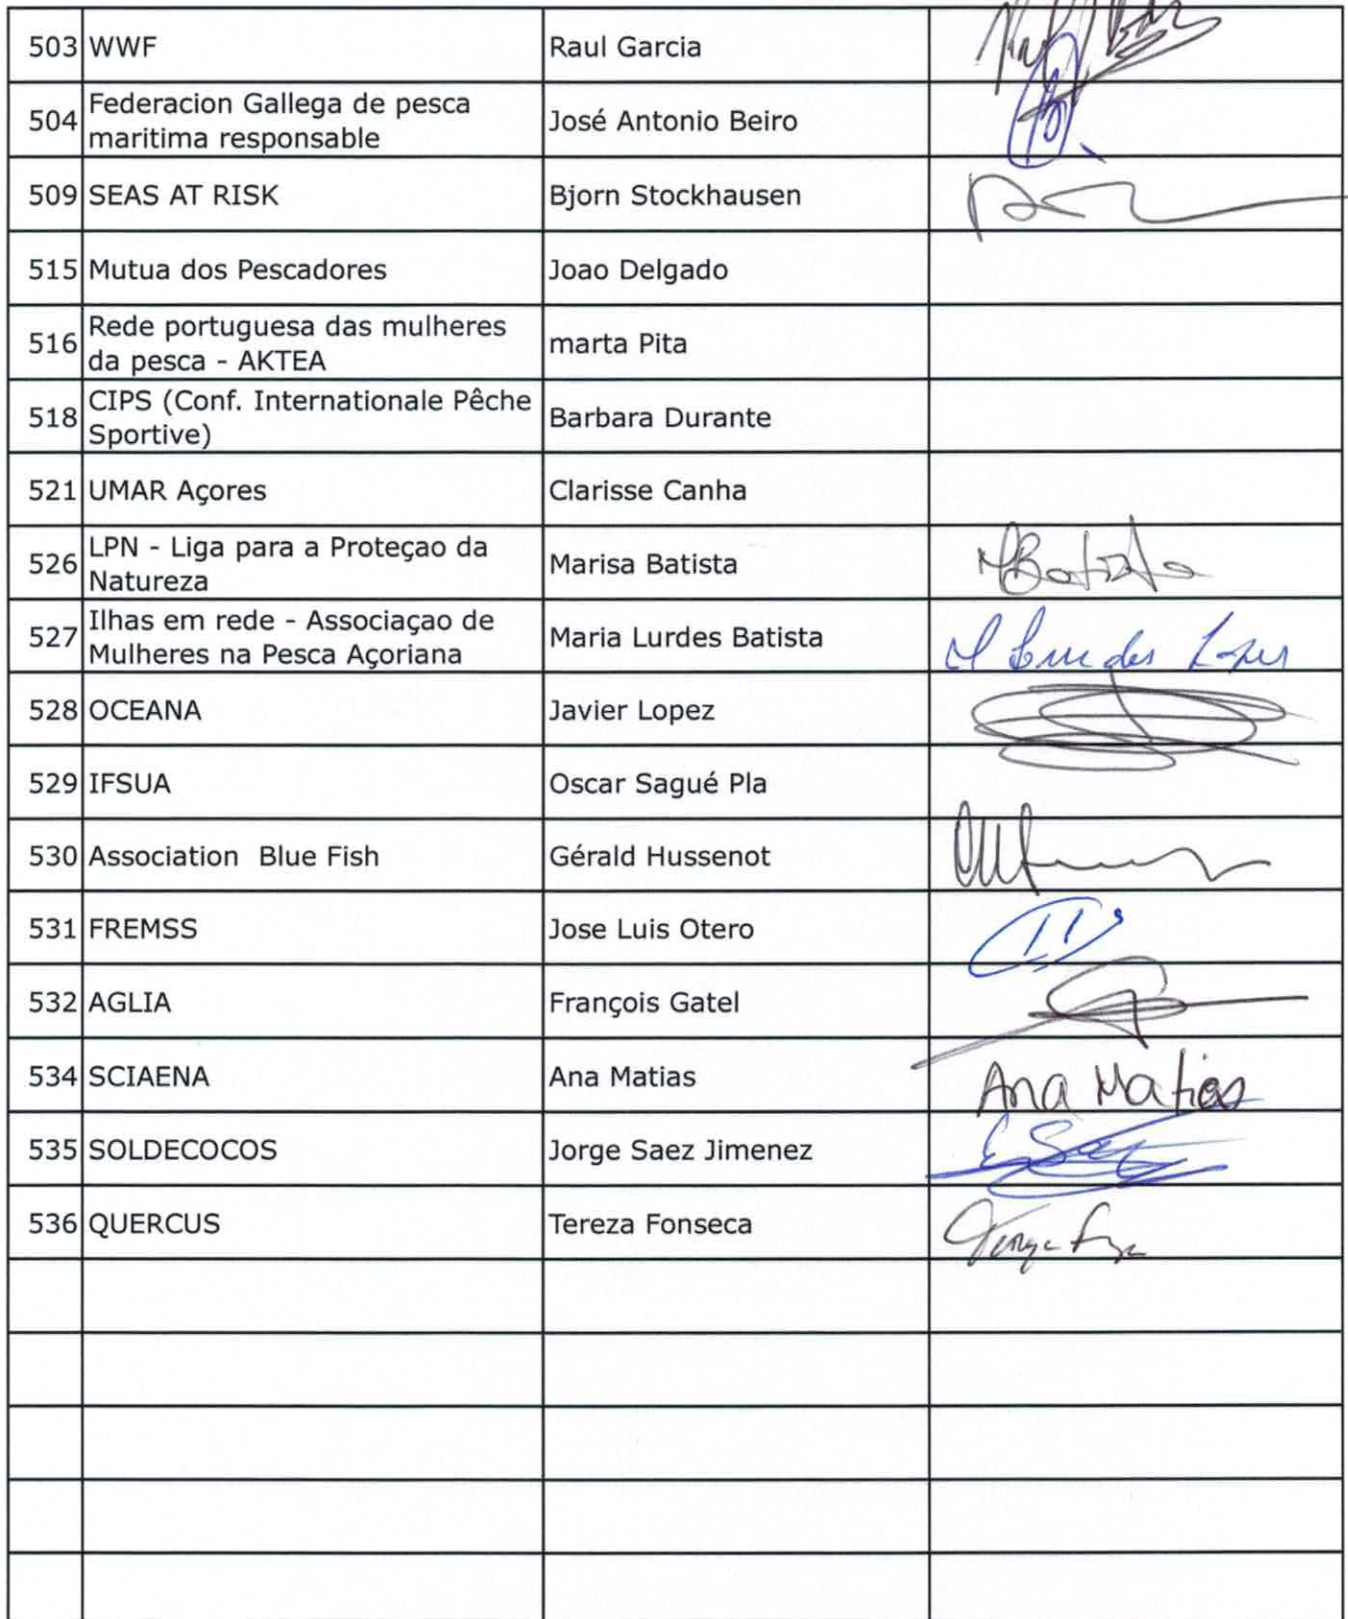 503 WWF Raul Garcia
504 Federacion Gallega de pesca
maritima responsable José Antonio Beiro
509 SEAS AT RISK Bjorn Stockhausen
515 Mutua dos Pescadores Joao Delgado
516 Rede portuguesa das mulheres
da pesca - AKTEA marta Pita
518 CIPS (Conf. Internationale Pêche
Sportive) Barbara Durante
521 UMAR Açores Clarisse Canha
526 LPN - Liga para a Proteçao da
Natureza Marisa Batista MBatista
527 Ilhas em rede - Associaçao de
Mulheres na Pesca Açoriana Maria Lurdes Batista M Lurdes Lopes
528 OCEANA Javier Lopez
529 IFSUA Oscar Sagué Pla
530 Association Blue Fish Gérald Hussenot
531 FREMSS Jose Luis Otero
532 AGLIA François Gatel
534 SCIAENA Ana Matias Ana Matias
535 SOLDECOCOS Jorge Saez Jimenez
536 QUERCUS Tereza Fonseca